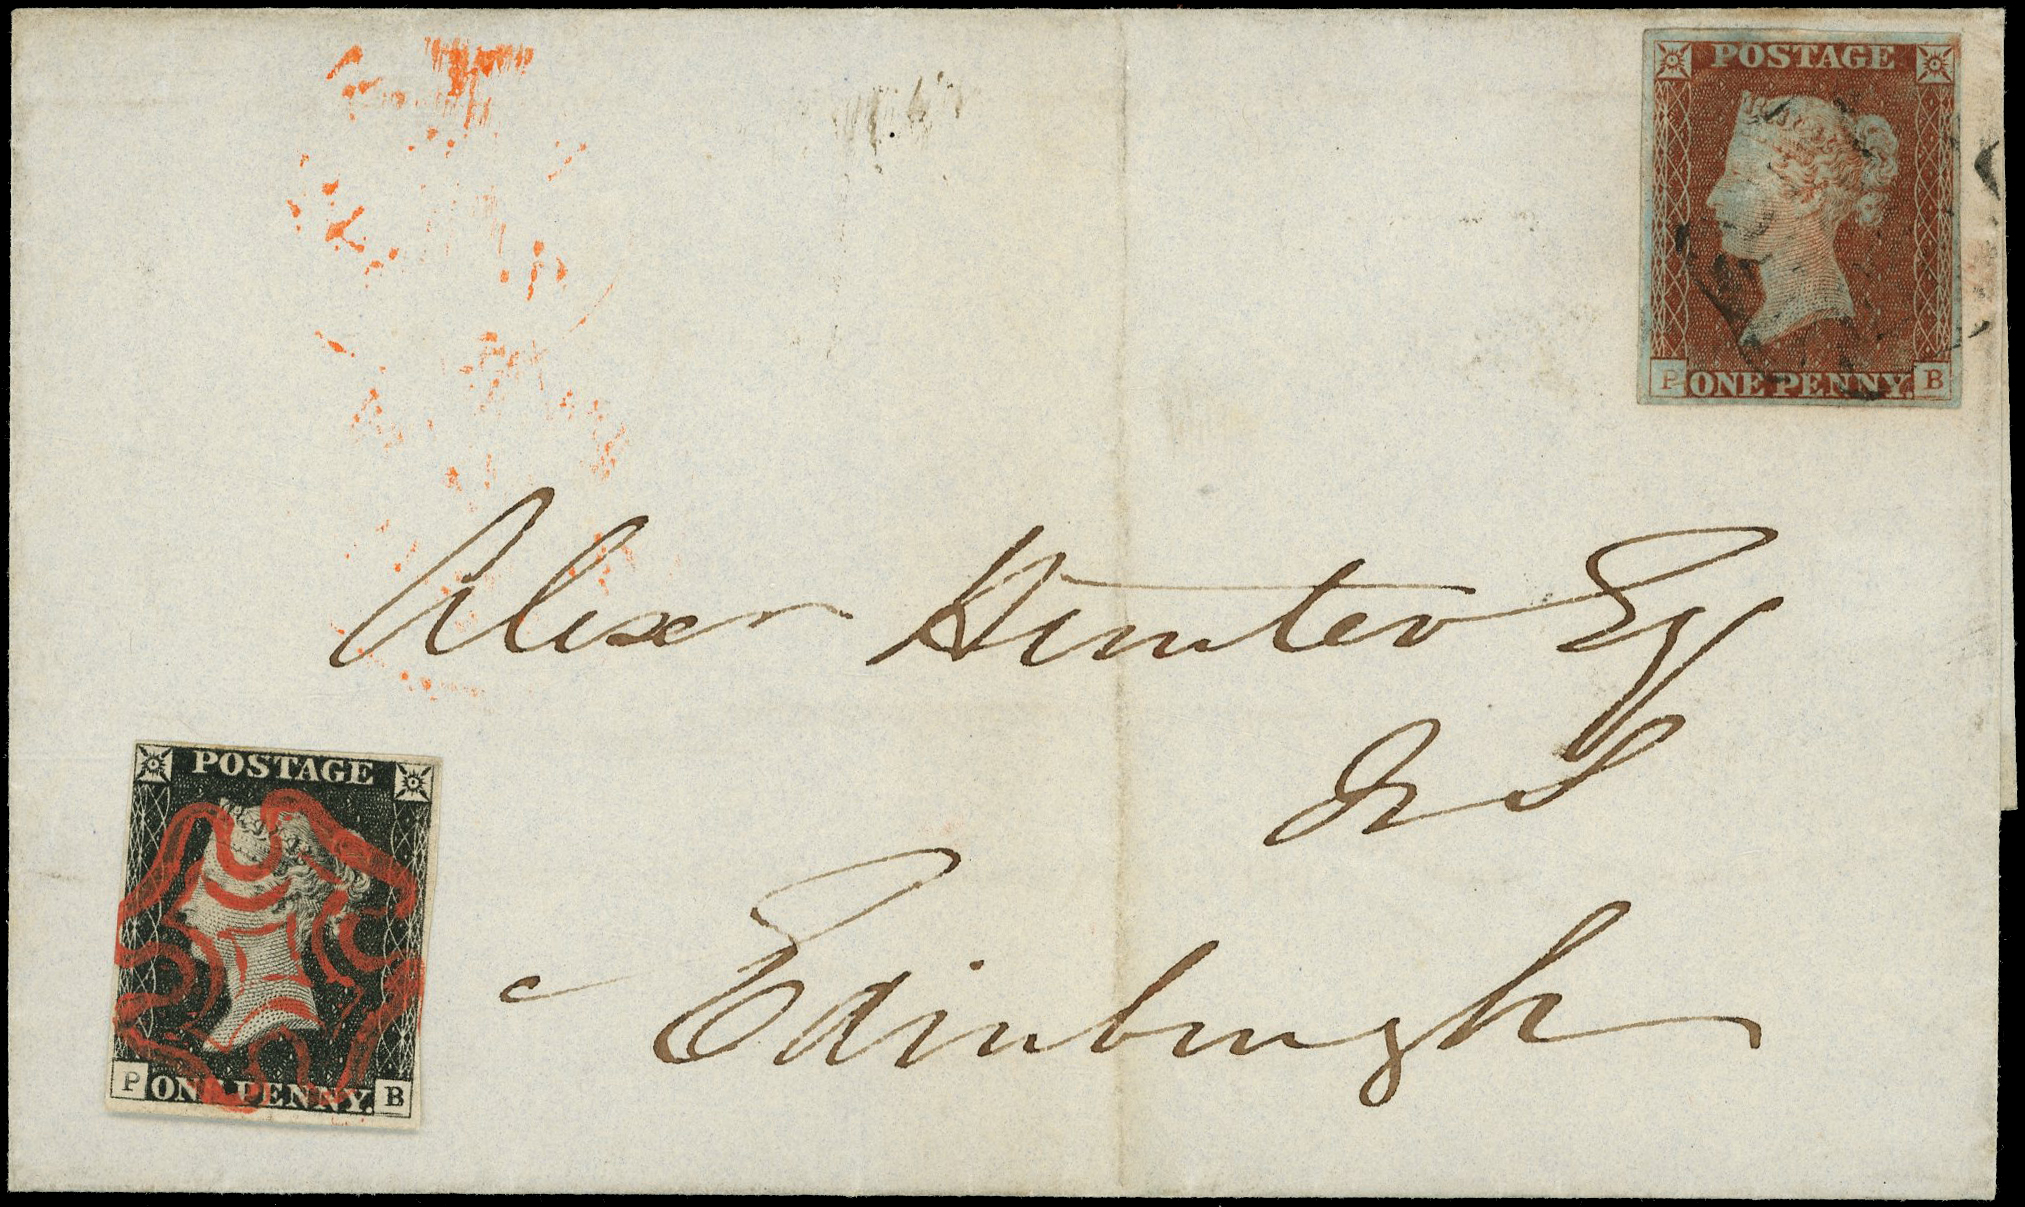 POSTAGE
P ONE PENNY. B
Alexr Hunter Esq
WS
Edinburgh
POSTAGE
P ONE PENNY. B